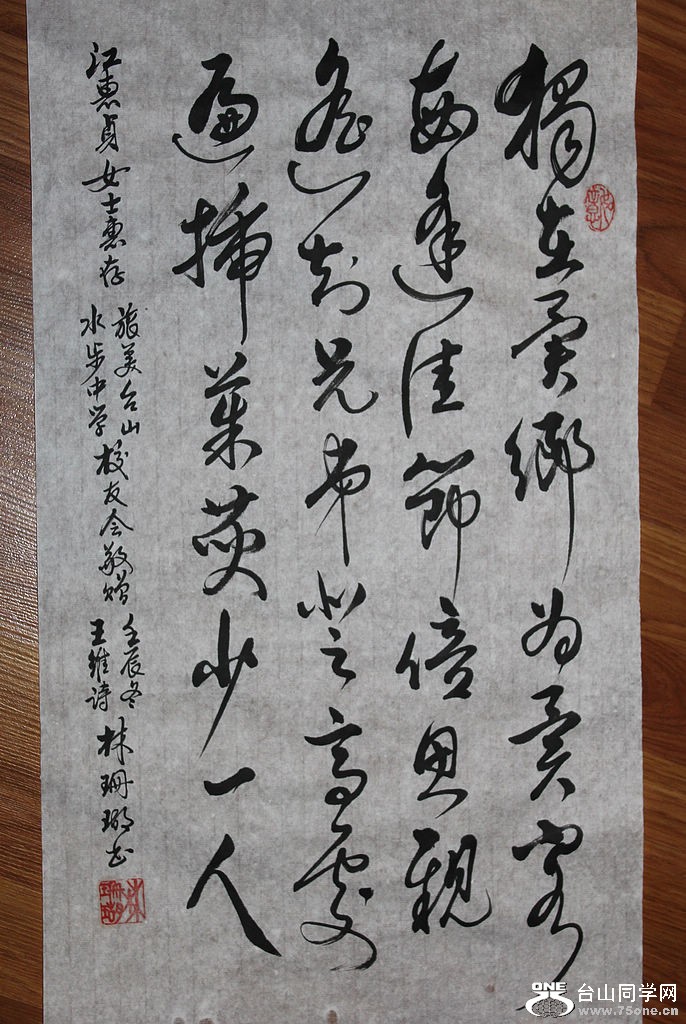 獨在異鄉为異客
每逢佳節倍思親
遙知兄弟登高處
遍插茱萸少一人
江惠貞女士惠存
旅美台山
水步中学
校友会敬贈
壬辰冬
王維诗
林珊瑚书
ONE
台山同学网
www.75one.cn